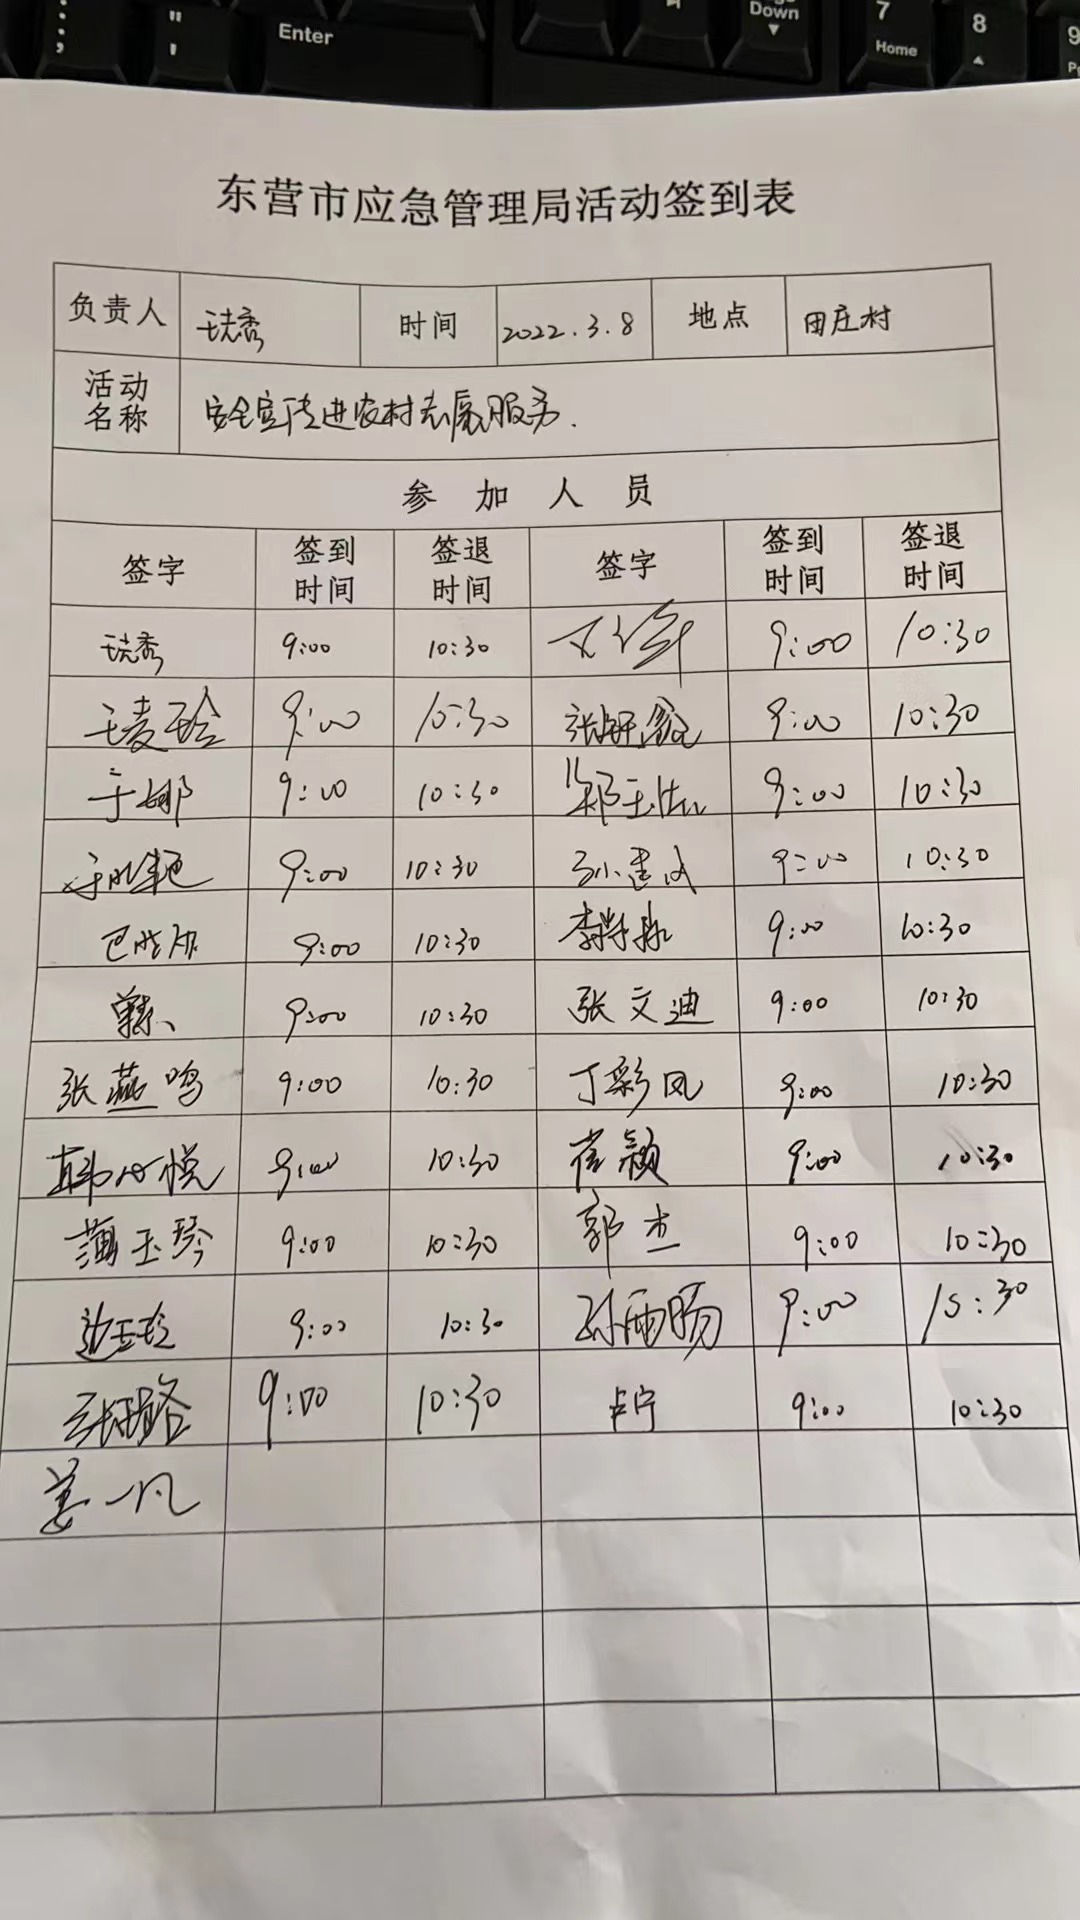 ;
:
"
'
Enter
Down
7
Home
8
9
东营市应急管理局活动签到表
负责人 时间 2022.3.8 地点 田庄村
活动名称 安全宣传进农村志愿服务.
参加人员
签字 签到时间 签退时间 签字 签到时间 签退时间
9:00 10:30 9:00 10:30
9:00 10:30 9:00 10:30
于娜 9:00 10:30 9:00 10:30
9:00 10:30 孙建成 9:00 10:30
9:00 10:30 9:00 10:30
9:00 10:30 张文迪 9:00 10:30
张燕鸣 9:00 10:30 丁彩凤 9:00 10:30
韩心悦 9:00 10:30 崔颖 9:00 10:30
蒲玉琴 9:00 10:30 郭杰 9:00 10:30
边玉玲 9:00 10:30 孙雨旸 9:00 10:30
张璐 9:00 10:30 卢宁 9:00 10:30
姜一凡